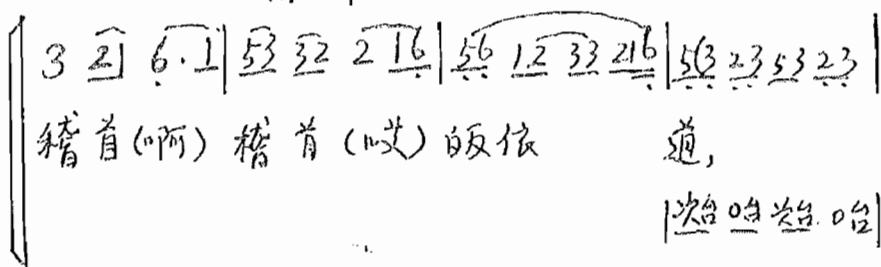 3 21 6·1|53 32 2 16|56 1.2 33 216|5(3 23 53 23|
稽首(啊) 稽首(哎)皈依 道,
|次台 0台 次台 0台|